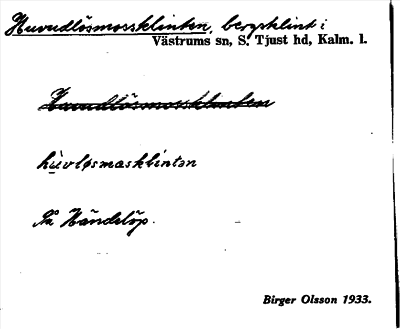 Huvudlösmossklinten, bergsklint i
Västrums sn, S. Tjust hd, Kalm. l.
Huvudlösmossklinten
hùvløsmasklintən
På Händelöp.
Birger Olsson 1933.